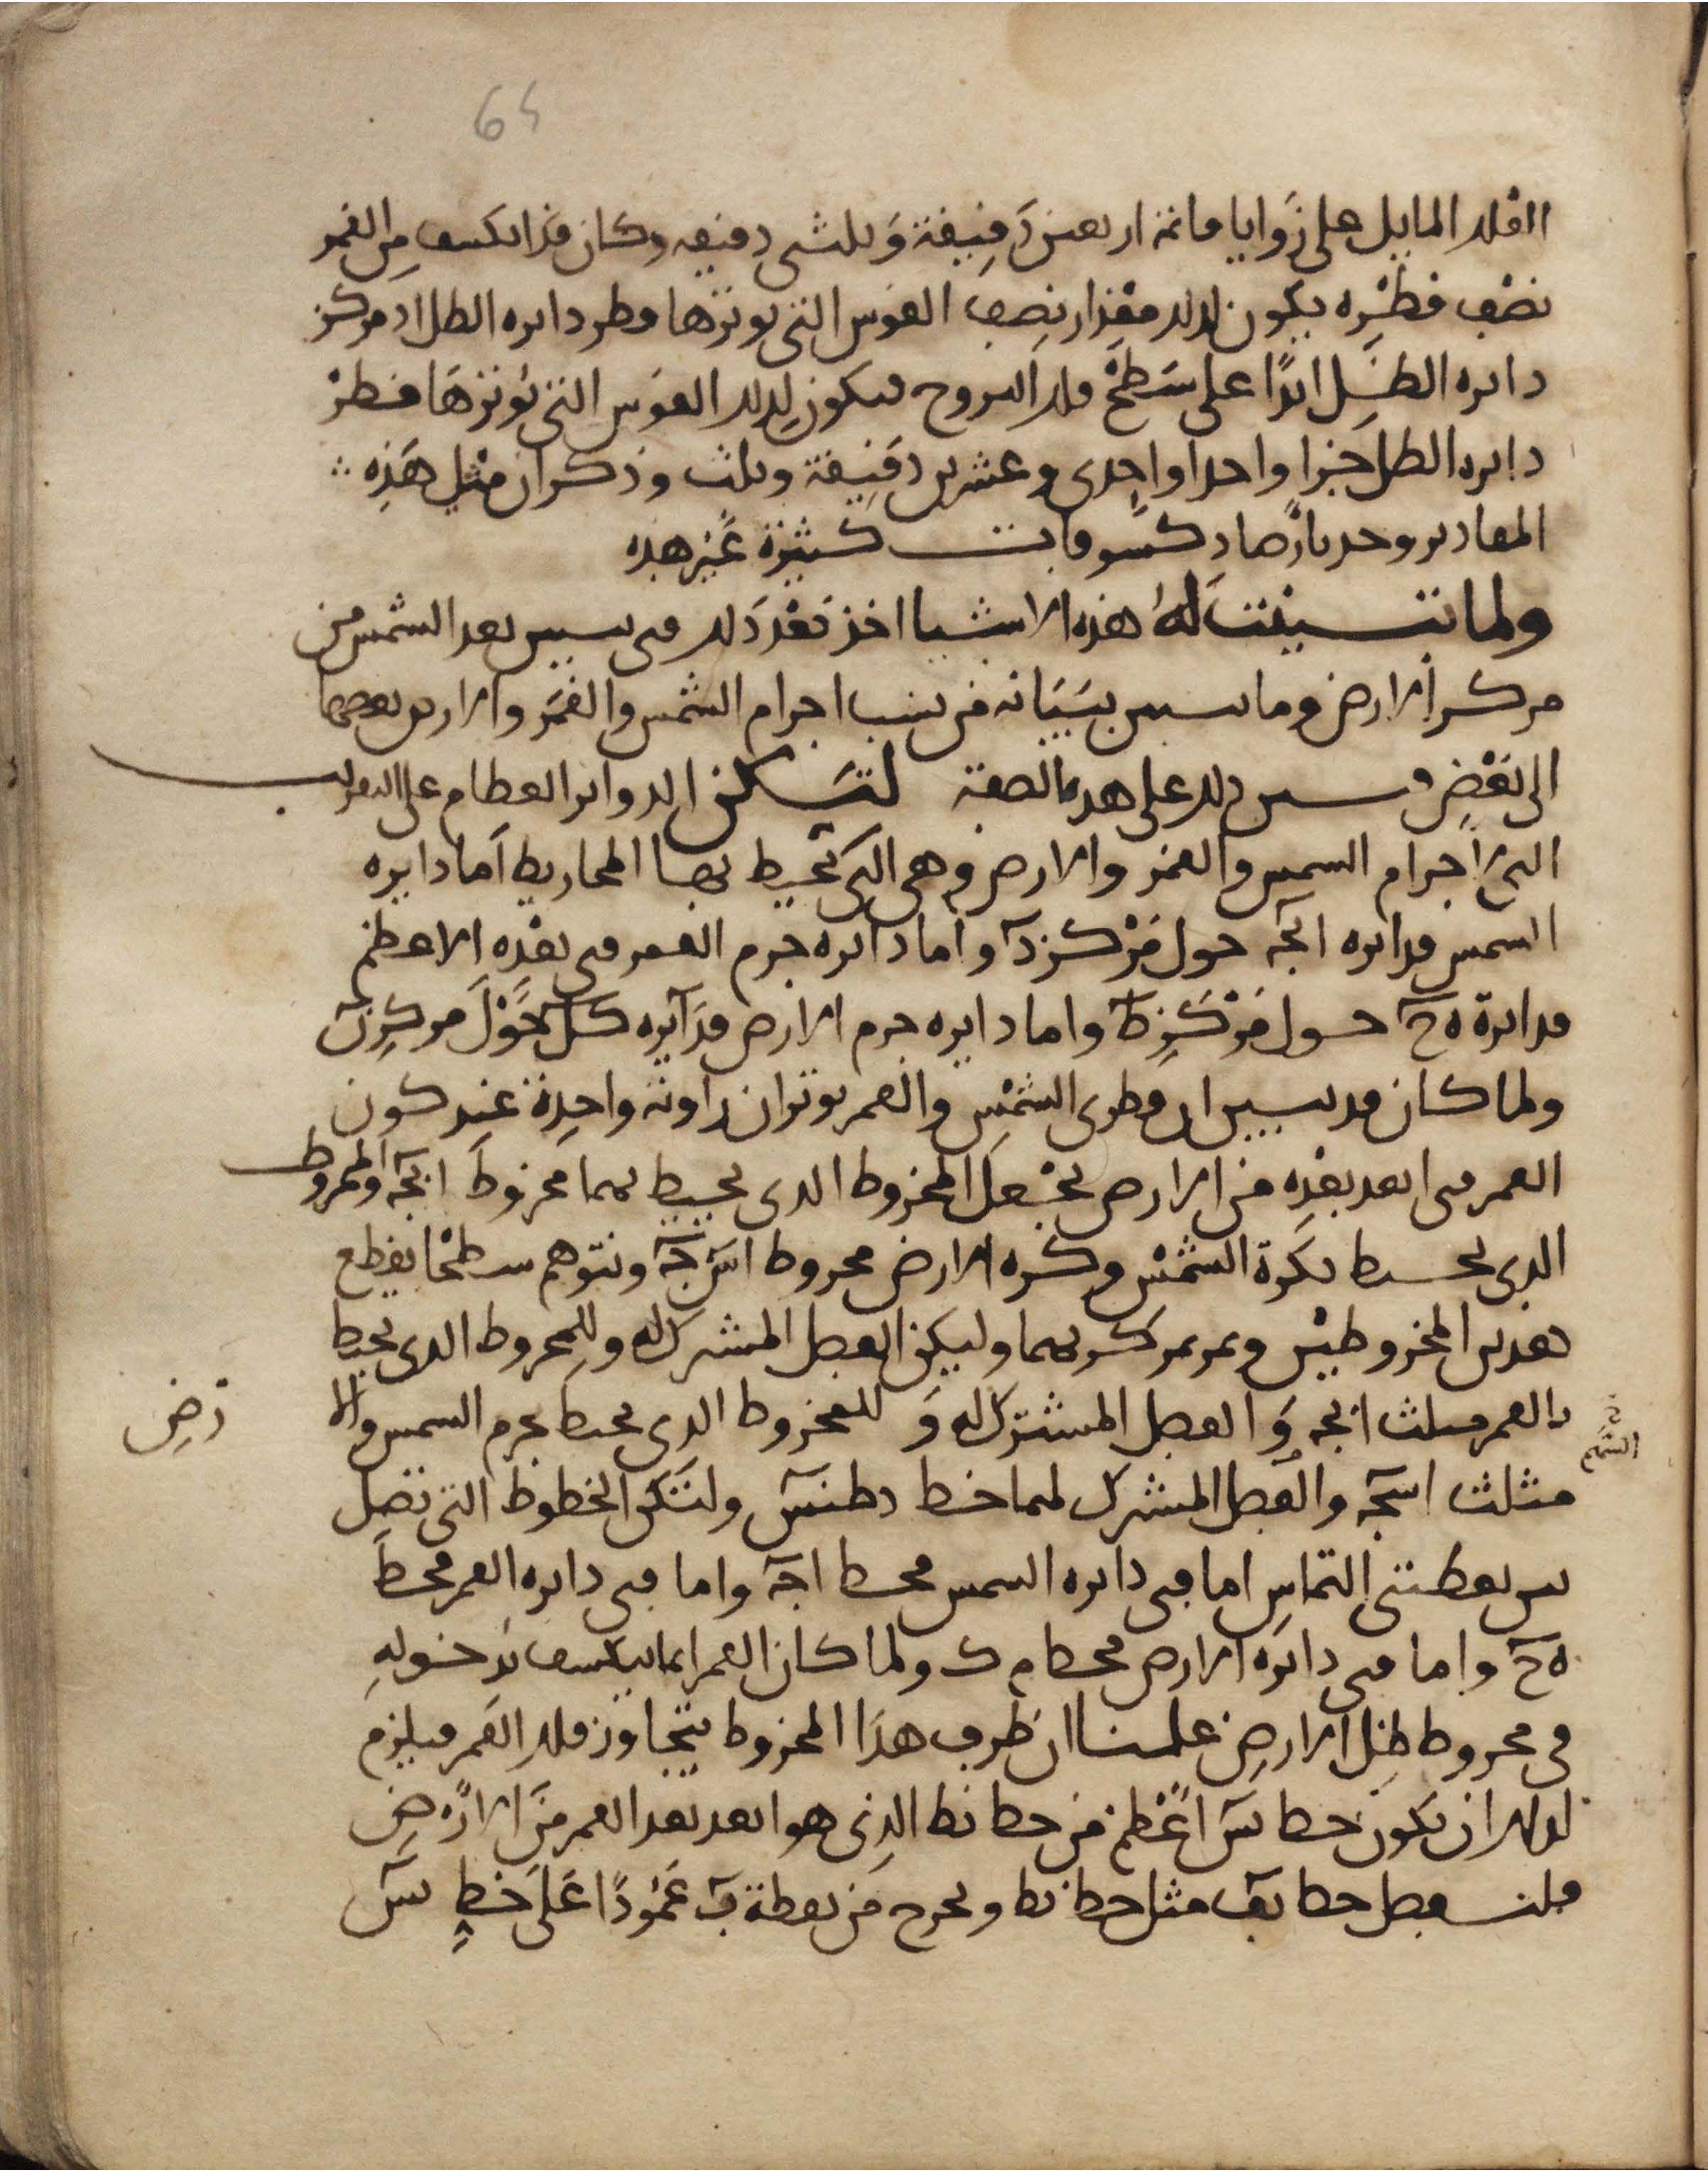 64
الفلك المايل على زوايا قائمة اربعين دقيقة وثلثى دقيقه وكان قد انكسف من القمر
نصف قطره يكون لذلك مقدار نصف القوس التى يوترها قطر دايره الظل اذ مركز
دايره الظل ابدًا على سَطح فلك البروج فيكون لذلك القوس التى يوترها قطر
دايره الظل جزا واحدا واحدى وعشرين دقيقة وثلث وذكر ان مثل هذه
المقادير وجد بارصاد كسوفات كثيرة غير هذه
ولما تبينت له هذه الاشيا اخذ بعد ذلك فى تبيين بعد الشمس من
مركز الارض وما يتبين بتبيانه من نسب اجرام الشمس والقمر والارض بعضها
الى بعض وبين ذلك على هذه الصفة لتكن الدواير العظام على التوالى
التى اجرام الشمس والقمر والارض وهى التى تحيط بها المخاريط اما دايره
الشمس فدايره ابجـ حول مركز د واما دايره جرم القمر فى بعده الاعظم
فدايرة هح حول مركز ط واما دايره جرم الارض فدايره كل حول مركز ن
ولما كان قد تبين ان قطرى الشمس والقمر يوتران زاوية واحدة عند كون
القمر فى ابعد بعده من الارض نجعل المخروط الذى يحيط بهما مخروط ابجـ والمخروط
الذى يحيط بكرة الشمس وكره الارض مخروط اسجـ ونتوهم سطحًا يقطع
هذين المخروطين ويمر بمركزيهما وليكن الفصل المشترك له وللمخروط الذى يحيط
بالقمر مثلث ابجـ و الفصل المشترك له و للمخروط الذى يحيط بجرم الشمس والا
رض
مثلث اسجـ والفصل المشترك لهما خط دطنس ولتكن الخطوط التى تصل
بين نقطتى التماس اما فى دايره الشمس فخط اجـ واما فى دايره القمر فخط
هح واما فى دايره الارض فخط م ك ولما كان القمر انما ينكسف بدخوله
فى مخروط ظل الارض علمنا ان طرف هذا المخروط يتجاوز فلك القمر فيلزم
لذلك ان يكون خط نس اعظم من خط نط الذى هو ابعد بعد القمر من الارض
فلنفصل خط نف مثل خط نط ونخرج من نقطة ف عمودًا على خط نس